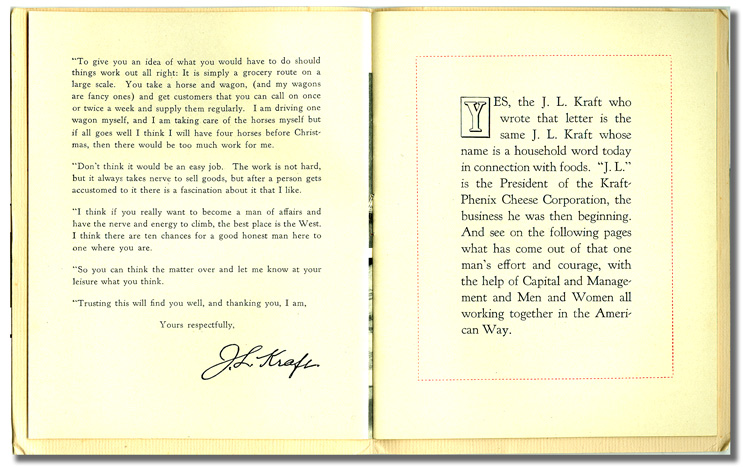 "To give you an idea of what you would have to do should
things work out all right: It is simply a grocery route on a
large scale. You take a horse and wagon, (and my wagons
are fancy ones) and get customers that you can call on once
or twice a week and supply them regularly. I am driving one
wagon myself, and I am taking care of the horses myself but
if all goes well I think I will have four horses before Christ-
mas, then there would be too much work for me.
"Don't think it would be an easy job. The work is not hard,
but it always takes nerve to sell goods, but after a person gets
accustomed to it there is a fascination about it that I like.
"I think if you really want to become a man of affairs and
have the nerve and energy to climb, the best place is the West.
I think there are ten chances for a good honest man here to
one where you are.
"So you can think the matter over and let me know at your
leisure what you think.
"Trusting this will find you well, and thanking you, I am,
Yours respectfully,
J. L. Kraft.
YES, the J. L. Kraft who
wrote that letter is the
same J. L. Kraft whose
name is a household word today
in connection with foods. "J. L."
is the President of the Kraft-
Phenix Cheese Corporation, the
business he was then beginning.
And see on the following pages
what has come out of that one
man's effort and courage, with
the help of Capital and Manage-
ment and Men and Women all
working together in the Ameri-
can Way.